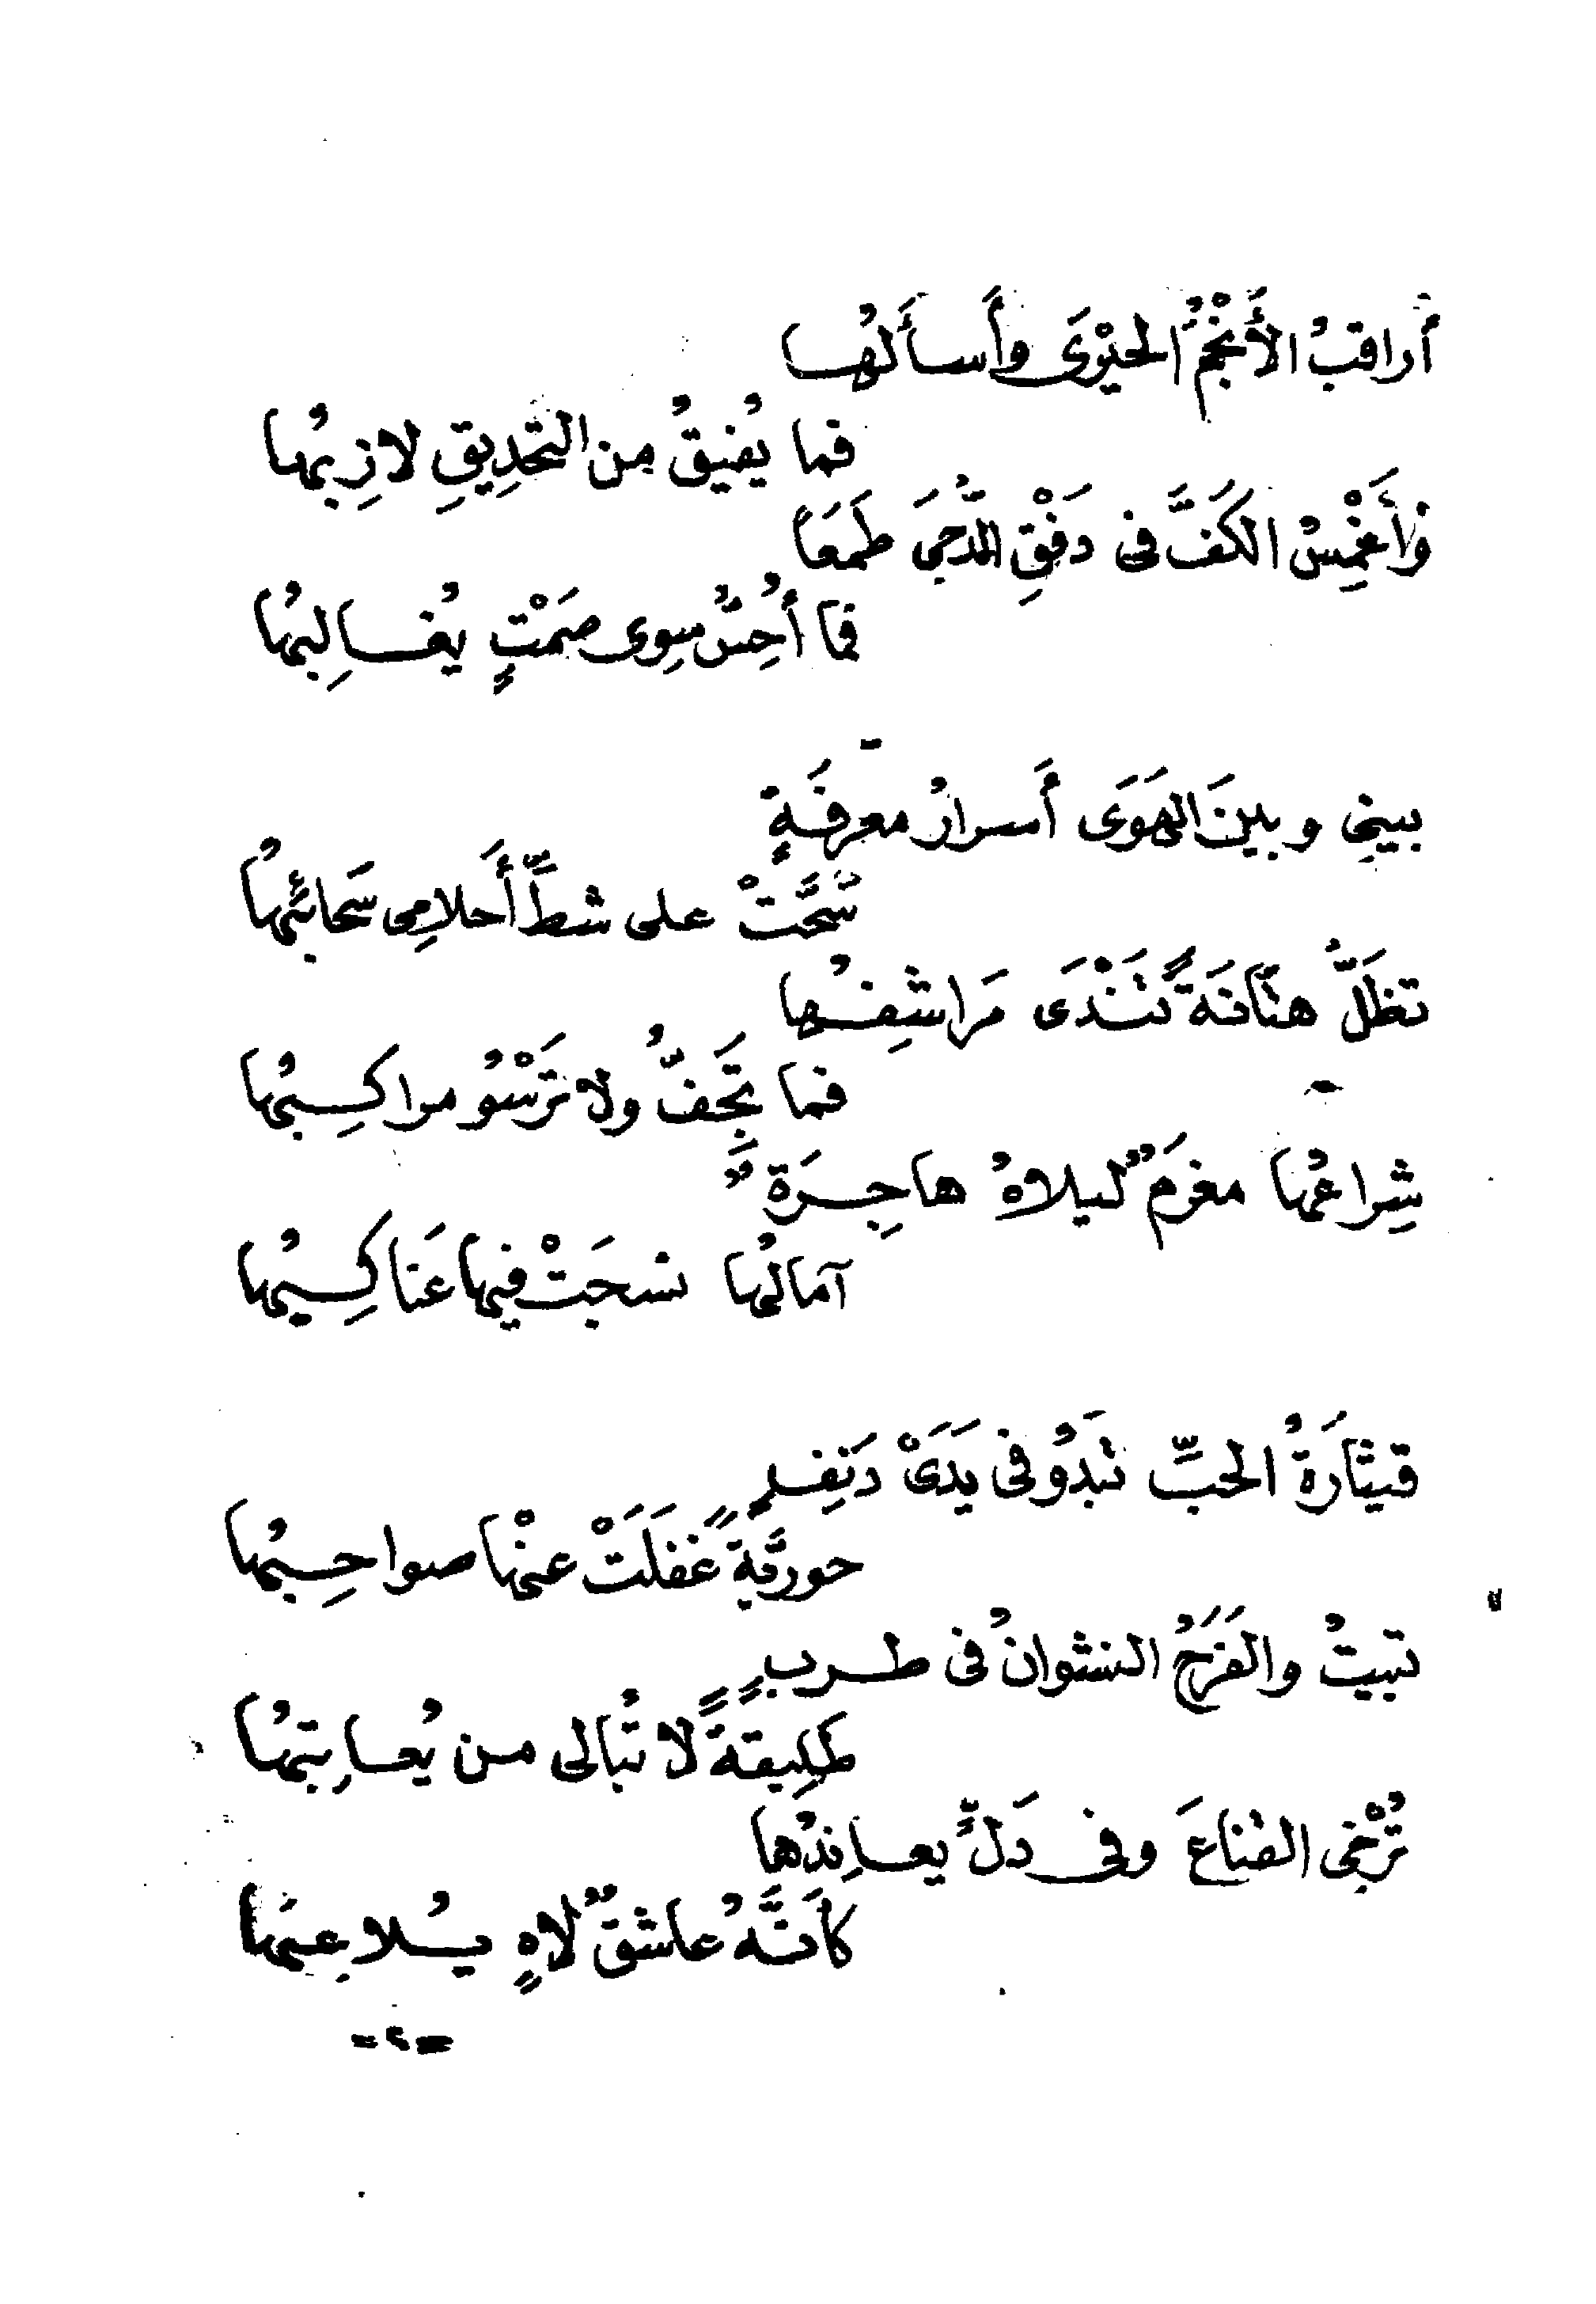 أراقبُ الأَنْجُمُ الحيْرَى وأَسأَلُها
فما يُفيقُ مِن التحْدِيقِ لازِبُها
وَأَغْمِسُ الكَفَّ فى دَفْقِ الدُّجَى طَمَعَاً
فما أُحِسُّ سِوى صَمْتٍ يُغالِبُها
بيني وبينَ الهَوَى أَسرارُ معرفَةٍ
سَحَّتْ على شطِّ أَحلامِى سَحائبُها
تظَلُّ هتَّانَةً تَنْدَى مَراشِفُها
فما تَجِفُّ ولا تَرْسُو مراكِبُها
شِراعُها مغرَمٌ ليلاهُ هاجِرَةٌ
آمالُها نسجَتْ فيها عَناكِبُها
قيثارَةُ الحبِّ تَبدُو فى يَدَىْ دَنِفٍ
حوريَّةً غَفَلَتْ عنْها صواحِبُها
تبيتُ والفَرَحُ النشوانُ فى طربٍ
طليقةً لا تُبالى من يُعاتِبُها
تُرْخِى القناعَ وفى دَلٍّ يعانِدُها
كأَنَّهُ عاشقٌ لاهٍ يُلاعِبُها
-٢-